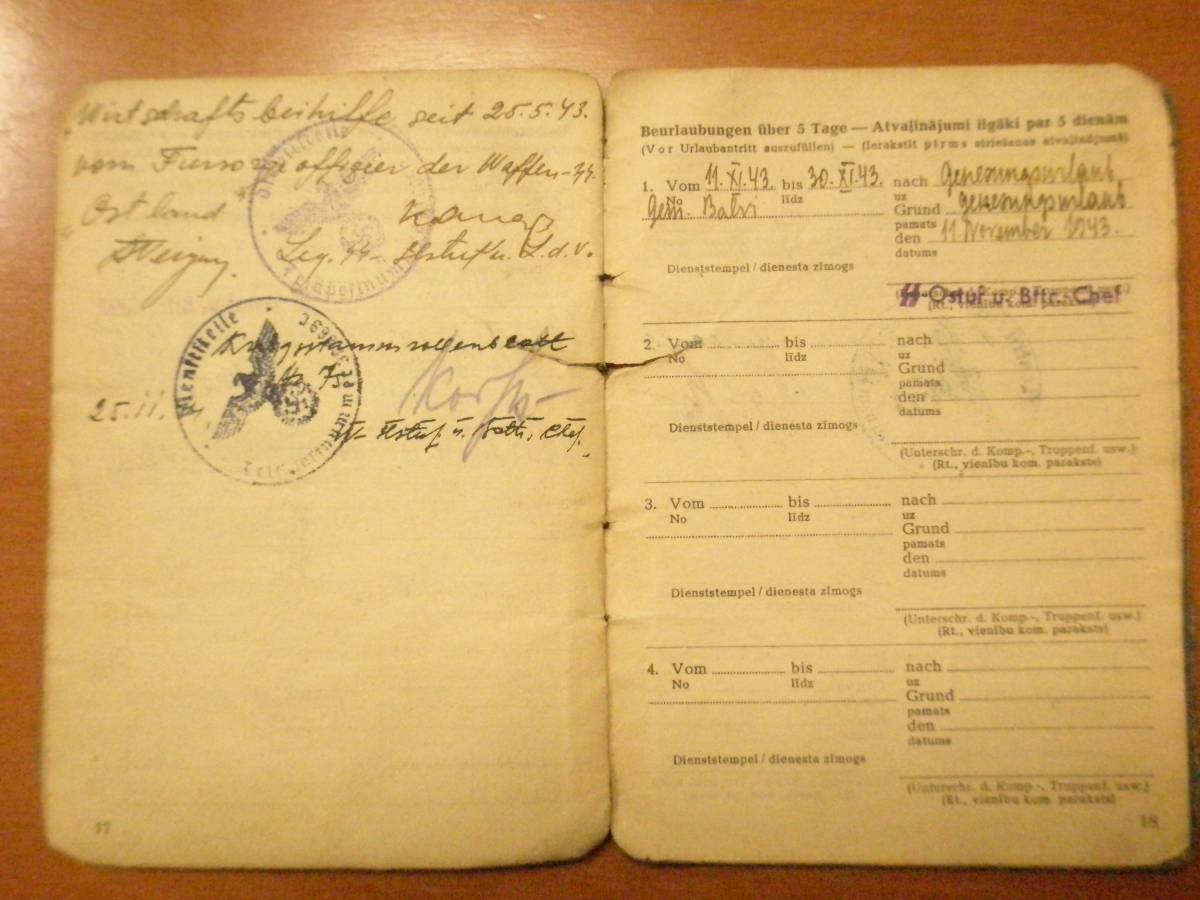 Wirtschaftsbeihilfe seit 25.5.43.
vom Fürsorgeoffizier der Waffen-SS
Ostland
Leg. SS-
Dienststelle
Feldpostnummer
Dienststelle
Kriegsstammrollenblatt
25.11.
SS-Hstuf. u. Battr. Chef.
17
Beurlaubungen über 5 Tage — Atvaļinājumi ilgāki par 5 dienām
(Vor Urlaubantritt auszufüllen) — (Ierakstīt pirms aiziešanas atvaļinājumā)
1. Vom 11.XI.43. bis 30.XI.43. nach Genesungsurlaub
No līdz
Gem. Balvi
Grund Genesungsurlaub
pamats
den 11. November 1943.
datums
Dienststempel / dienesta zīmogs
SS-Ostuf u. Bttr.-Chef
(Rt., vienību kom. paraksts)
2. Vom bis nach
No uz
Grund
pamats
den
datums
Dienststempel / dienesta zīmogs
(Unterschr. d. Komp.-, Truppenf. usw.)
(Rt., vienību kom. paraksts)
3. Vom bis nach
No līdz uz
Grund
pamats
den
datums
Dienststempel / dienesta zīmogs
(Unterschr. d. Komp.-, Truppenf. usw.)
(Rt., vienību kom. paraksts)
4. Vom bis nach
No līdz uz
Grund
pamats
den
datums
Dienststempel / dienesta zīmogs
(Unterschr. d. Komp.-, Truppenf. usw.)
(Rt., vienību kom. paraksts)
18